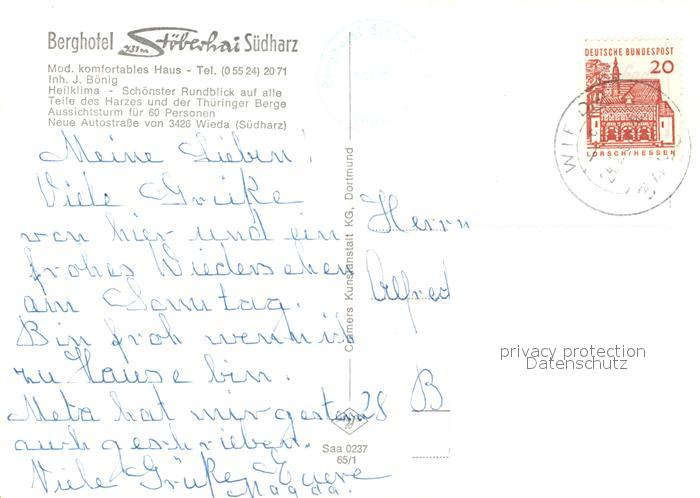 Berghotel Stöberhai Südharz
731m
Mod. komfortables Haus - Tel. (0 55 24) 20 71
Inh. J. Bönig
Heilklima - Schönster Rundblick auf alle
Teile des Harzes und der Thüringer Berge
Aussichtsturm für 60 Personen
Neue Autostraße von 3426 Wieda (Südharz)
Meine Lieben!
Viele Grüße
von hier und ein
frohes Wiedersehen
am Sonntag.
Bin froh wenn ich
zu Hause bin.
Meta hat mir gestern
auch geschrieben.
Viele Grüße Euere
Magda.
Cramers Kunstanstalt KG, Dortmund
Saa 0237
65/1
DEUTSCHE BUNDESPOST
20
LORSCH/HESSEN
WIEDA
Herrn
Alfred
28 B
privacy protection
Datenschutz